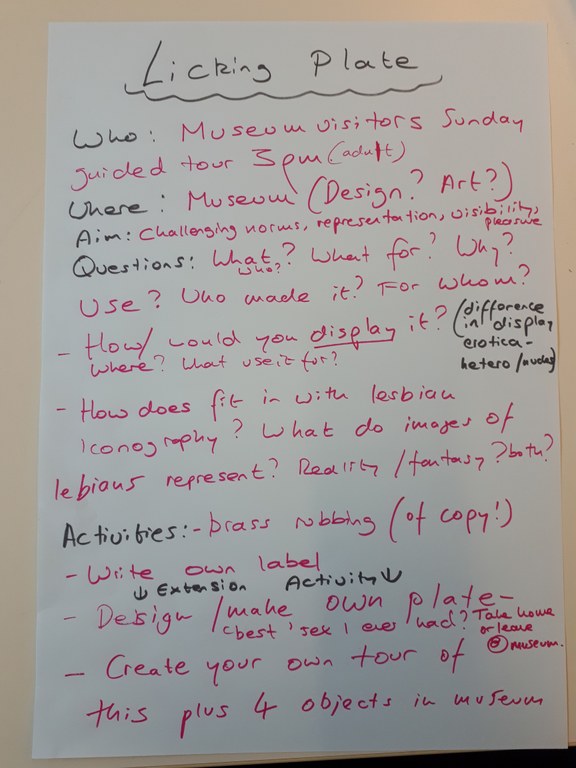 Licking Plate
Who: Museum visitors Sunday
guided tour 3pm (adult)
Where: Museum (Design? Art?)
Aim: Challenging norms, representation, visibility,
pleasure
Questions: What? What for? Why?
Who?
Use? Who made it? For whom?
- How/ would you display it? (difference
in display
erotica-
hetero/nudes)
Where? What use it for?
- How does fit in with lesbian
Iconography? What do images of
lebians represent? Reality/fantasy? both?
Activities:- brass rubbing (of copy!)
- Write own label
↓ Extension Activity ↓
- Design/make own plate-
"best 'sex I ever had? Take home
or leave
@ museum.
- Create your own tour of
this plus 4 objects in museum